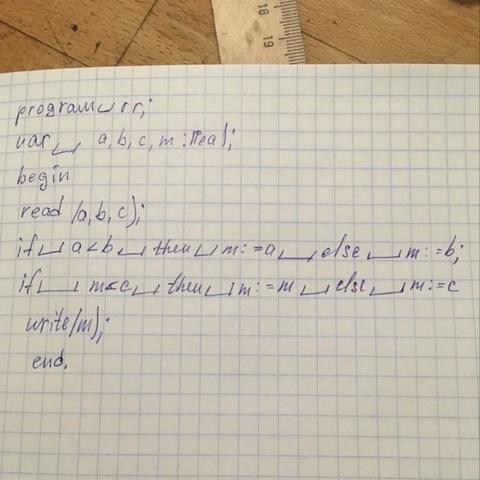 18
19
program␣rr;
var␣ a, b, c, m : real;
begin
read (a, b, c);
if␣ a<b␣ then␣ m:=a␣ else␣ m:=b;
if␣ m<c␣ then␣ m:=m␣ else␣ m:=c
write(m);
end.